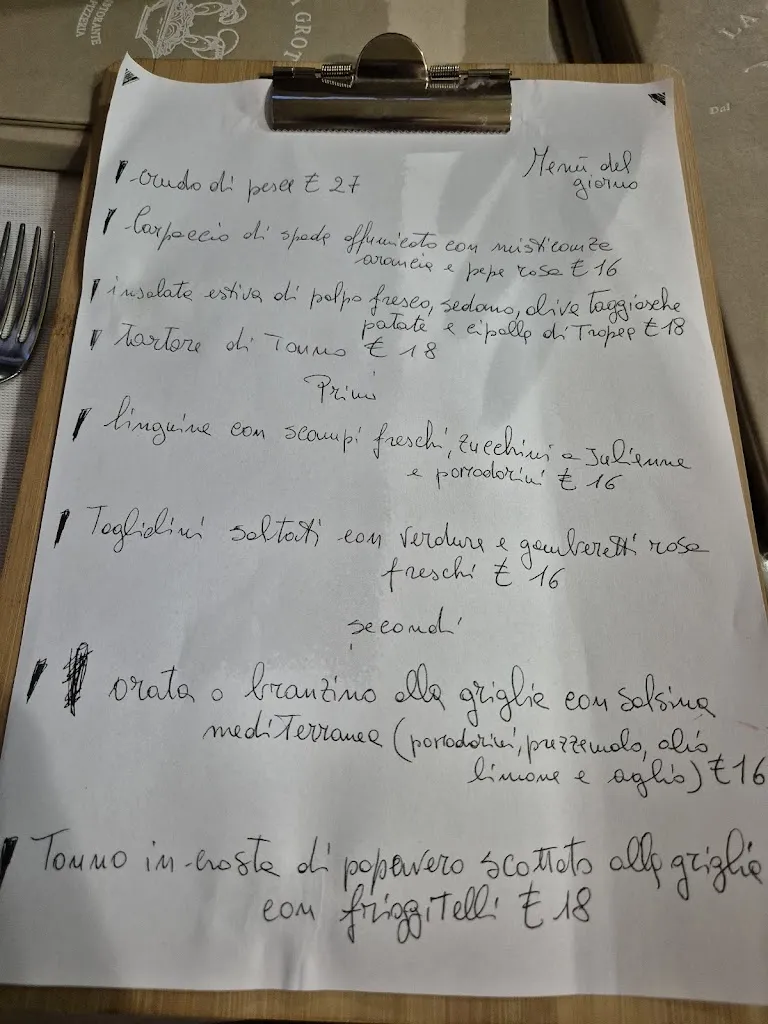 RISTORANTE
PIZZERIA
A GROT
LA
Dal
Menù del
giorno
crudo di pesce € 27
Carpaccio di spada affumicato con misticanza
arancia e pepe rosa € 16
insalata estiva di polpo fresco, sedano, olive taggiasche
patate e cipolla di Tropea € 18
tartare di Tonno € 18
Primi
linguine con scampi freschi, zucchini a Julienne
e pomodorini € 16
Tagliolini saltati con verdure e gamberetti rosa
freschi € 16
secondi
orata o branzino alla griglia con salsina
mediTerranea (pomodorini, prezzemolo, olio
limone e aglio) € 16
Tonno in crosta di papavero scottato alla griglia
con friggitelli € 18